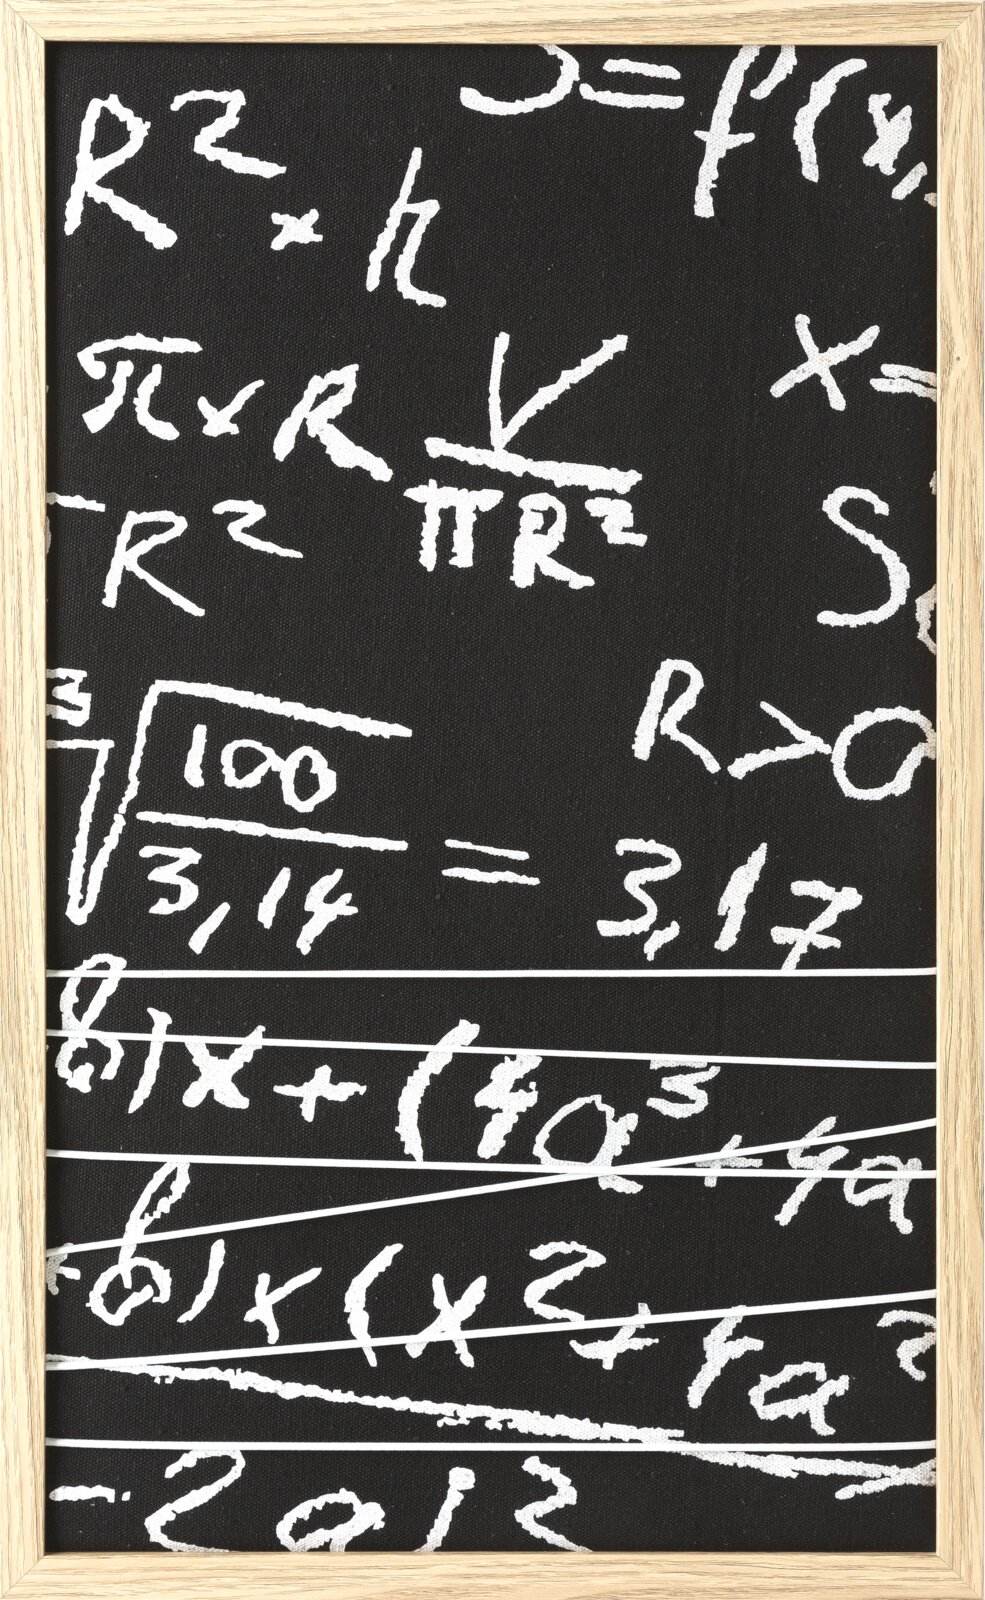 S = f(x,
R² × h
π × R
V / πR²
x =
R²
S
R > 0
³√(100 / 3,14) = 3,17
8)x + (4a³ + 4a
6) × (x² + 4a²
- 2a)²